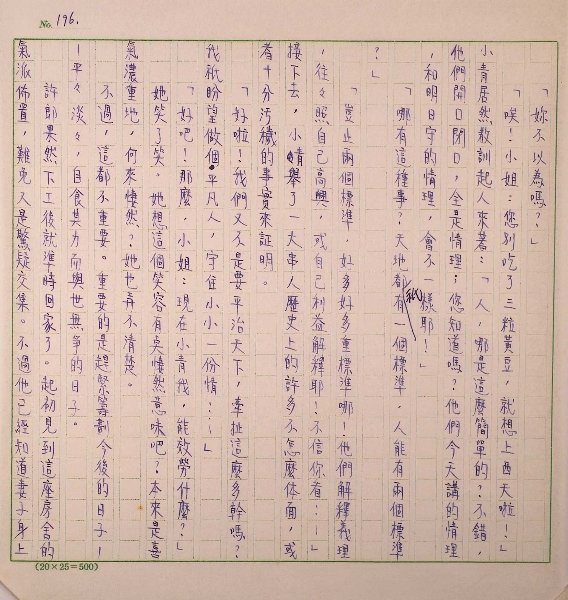 No. 196.
「妳不以為嗎？」
「唉！小姐：您別吃了三粒黃豆，就想上西天啦！」
小青居然教訓起人來著：「人，哪是這麼簡單的？不錯，
他們開口閉口，全是情理；您知道嗎？他們今天講的情理
，和明日守的情理，會不一樣耶！」
「哪有這種事？天地都祇有一個標準，人能有兩個標準
？」
「豈止兩個標準，好多好多重標準哪！他們解釋義理
，往々照自己高興，或自己利益解釋耶！不信你看：—」
接下去，小青舉了一大串人歷史上的許多不怎麼体面，或
者十分污穢的事實來証明。
「好啦！我們又不是要平治天下，牽扯這麼多幹嗎？
我祇盼望做個平凡人，守住小小一份情…。」
「好吧！那麼，小姐：現在小青我，能效勞什麼？」
她笑了笑。她想這個笑容有臭悽然意味吧？本來是喜
氣濃重地，何來悽然？她也弄不清楚。
不過，這都不重要。重要的是趕緊籌劃今後的日子—
—平々淡々，自食其力而與世無爭的日子。
許郎果然下工後就準時回家了。起初見到這座房舍的
氣派佈置，難免又是驚疑交集。不過他已經知道妻子身上
(20×25=500)